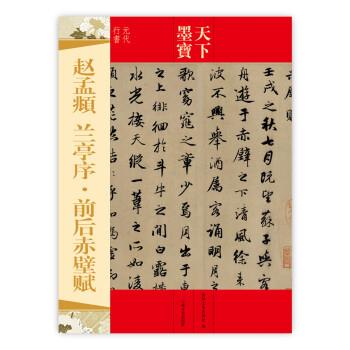 天下
墨寶
元代
行書
赵孟頫 兰亭序·前后赤壁赋
壬戌之秋七月既望蘇子與客
舟遊于赤壁之下清風徐來
波不興舉酒屬客誦明月
歌窈窕之章少焉月出于東
之上徘徊於斗牛之間白露
水光接天縱一葦之所如凌